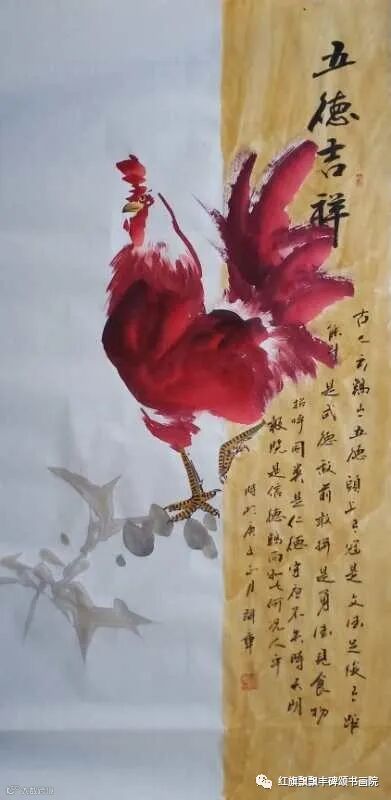 五德吉祥
古人云鷄有五德頭上有冠是文德足後有距
能鬥是武德敌前敢拼是勇德見食物
招呼同类是仁德守夜不失時天明
報晓是信德鷄尚如此何况人乎
時於庚子月
红旗飘飘丰碑颂书画院